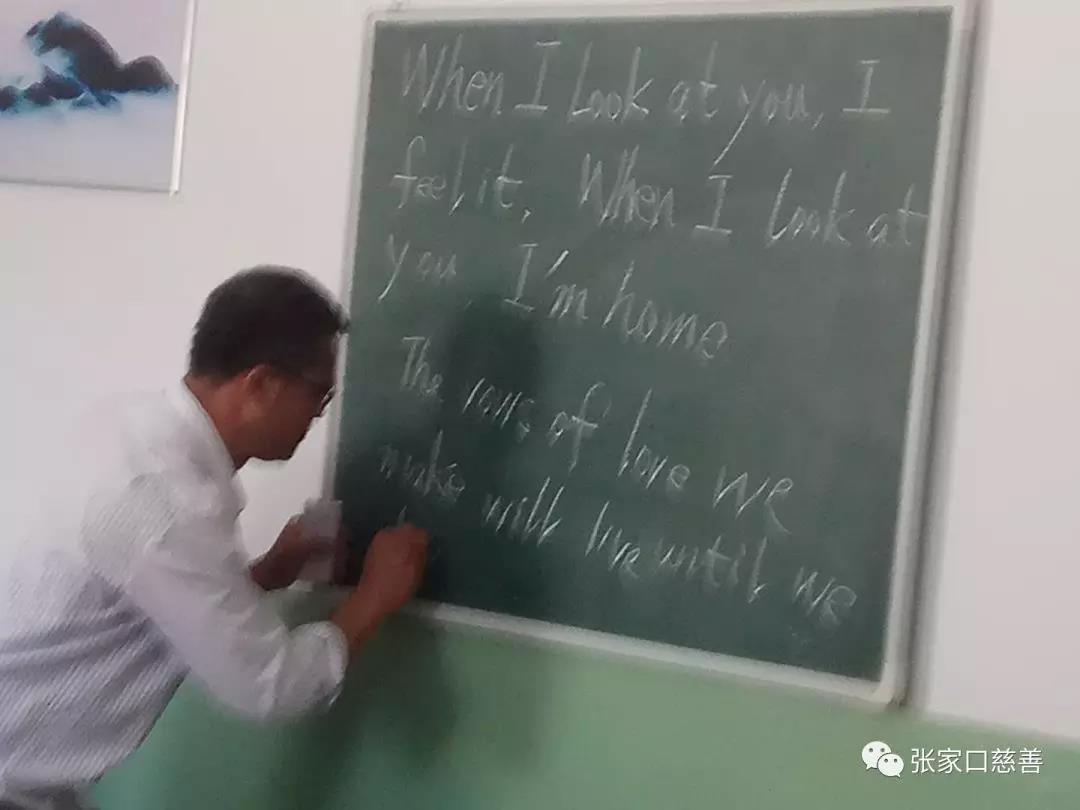 When I look at you, I
feel it. When I look at
you I'm home
The of love we
make will live until we
张家口慈善